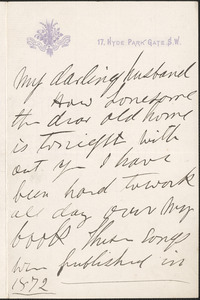 17, HYDE PARK GATE. S.W.
My darling husband
How lonesome
the dear old home
is tonight with
out yr I have
been hard to work
all day over my
book These Songs
were published in
1872